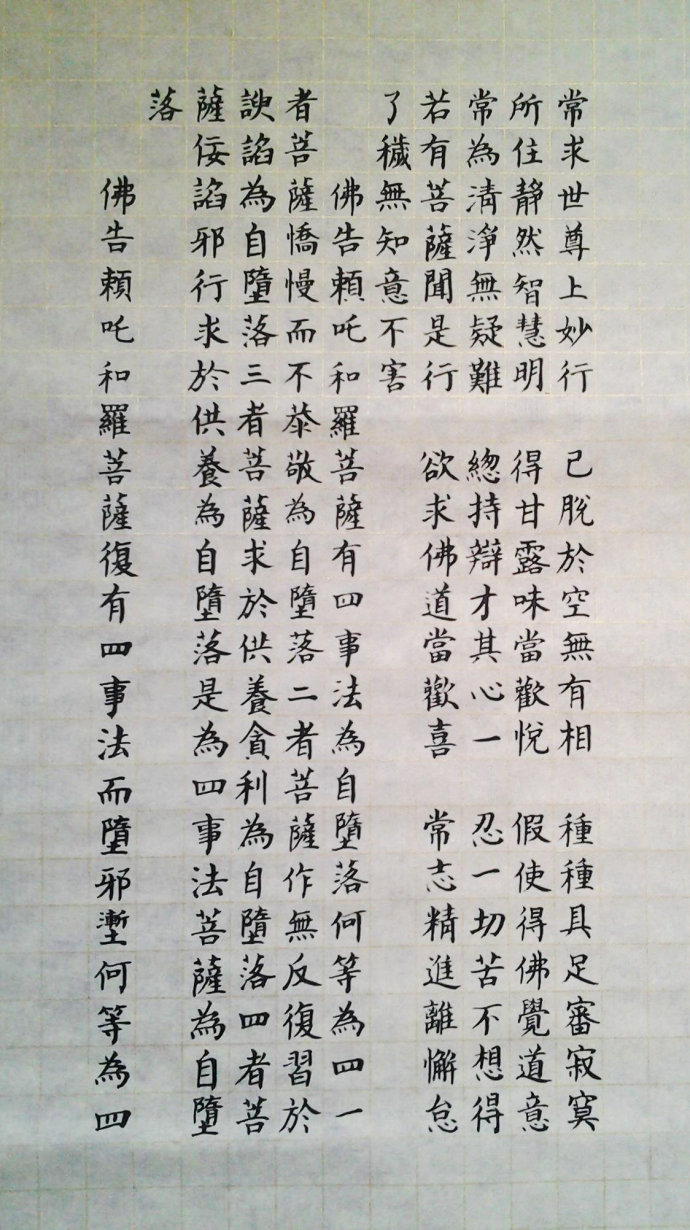 常求世尊上妙行　已脫於空無有相　種種具足審寂寞
所住靜然智慧明　得甘露味當歡悅　假使得佛覺道意
常為清淨無疑難　總持辯才其心一　忍一切苦不想得
若有菩薩聞是行　欲求佛道當歡喜　常志精進離懈怠
了穢無知意不害
佛告賴吒和羅菩薩有四事法為自墮落何等為四一
者菩薩憍慢而不恭敬為自墮落二者菩薩作無反復習於
諛諂為自墮落三者菩薩求於供養貪利為自墮落四者菩
薩佞諂邪行求於供養為自墮落是為四事法菩薩為自墮
落
佛告賴吒和羅菩薩復有四事法而墮邪壍何等為四